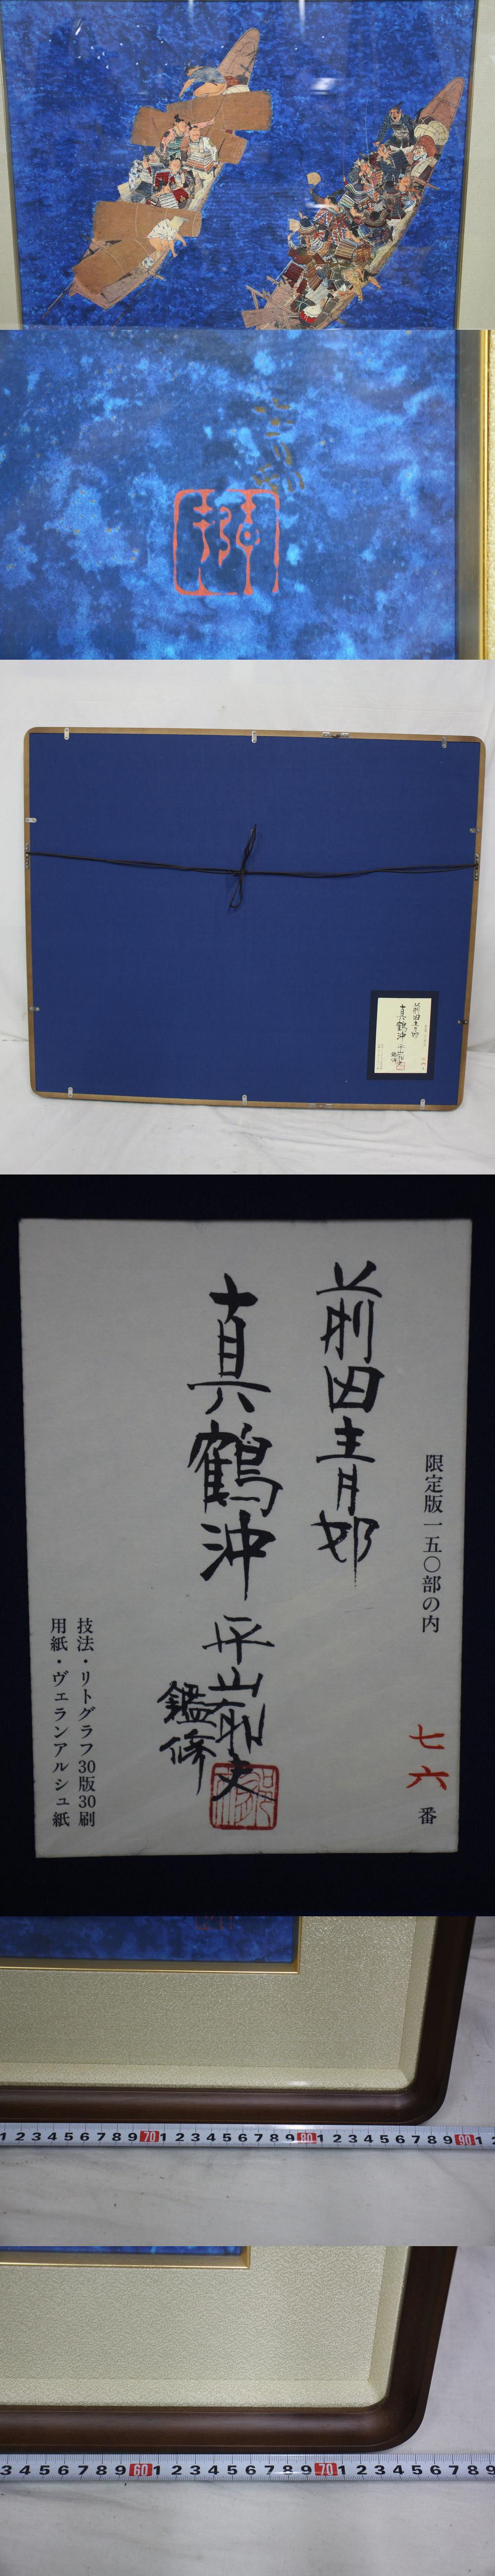 青邨
限定版一五〇部の内
七六番
前田青邨
真鶴沖
平山郁夫
鑑修
技法・リトグラフ30版30刷
用紙・ヴェランアルシュ紙
1 2 3 4 5 6 7 8 9 70 1 2 3 4 5 6 7 8 9 80 1 2 3 4 5 6 7 8 9 90 1 2
3 4 5 6 7 8 9 60 1 2 3 4 5 6 7 8 9 70 1 2 3 4 5 6 7 8 9